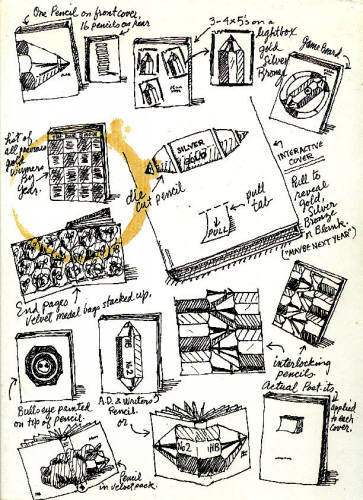 One Pencil on front cover,
16 pencils on rear
3-4x5's on a
lightbox
gold
Silver
Bronze
Game Board
List of
all previous
gold
winners
by
yrs.
SILVER
die
cut pencil
INTERACTIVE
COVER
Pull to
reveal
gold,
Silver
Bronze
or Blank.
("MAYBE NEXT YEAR")
Pull
tab
PULL
End pages
Velvet medal bags stacked up.
interlocking
pencils
Bullseye painted
on tip of pencil.
HB
No2
A.D. & Writers
Pencil.
or
No2
HB
Actual Post-its
applied
to each
cover.
Pencil
in velvet pack.